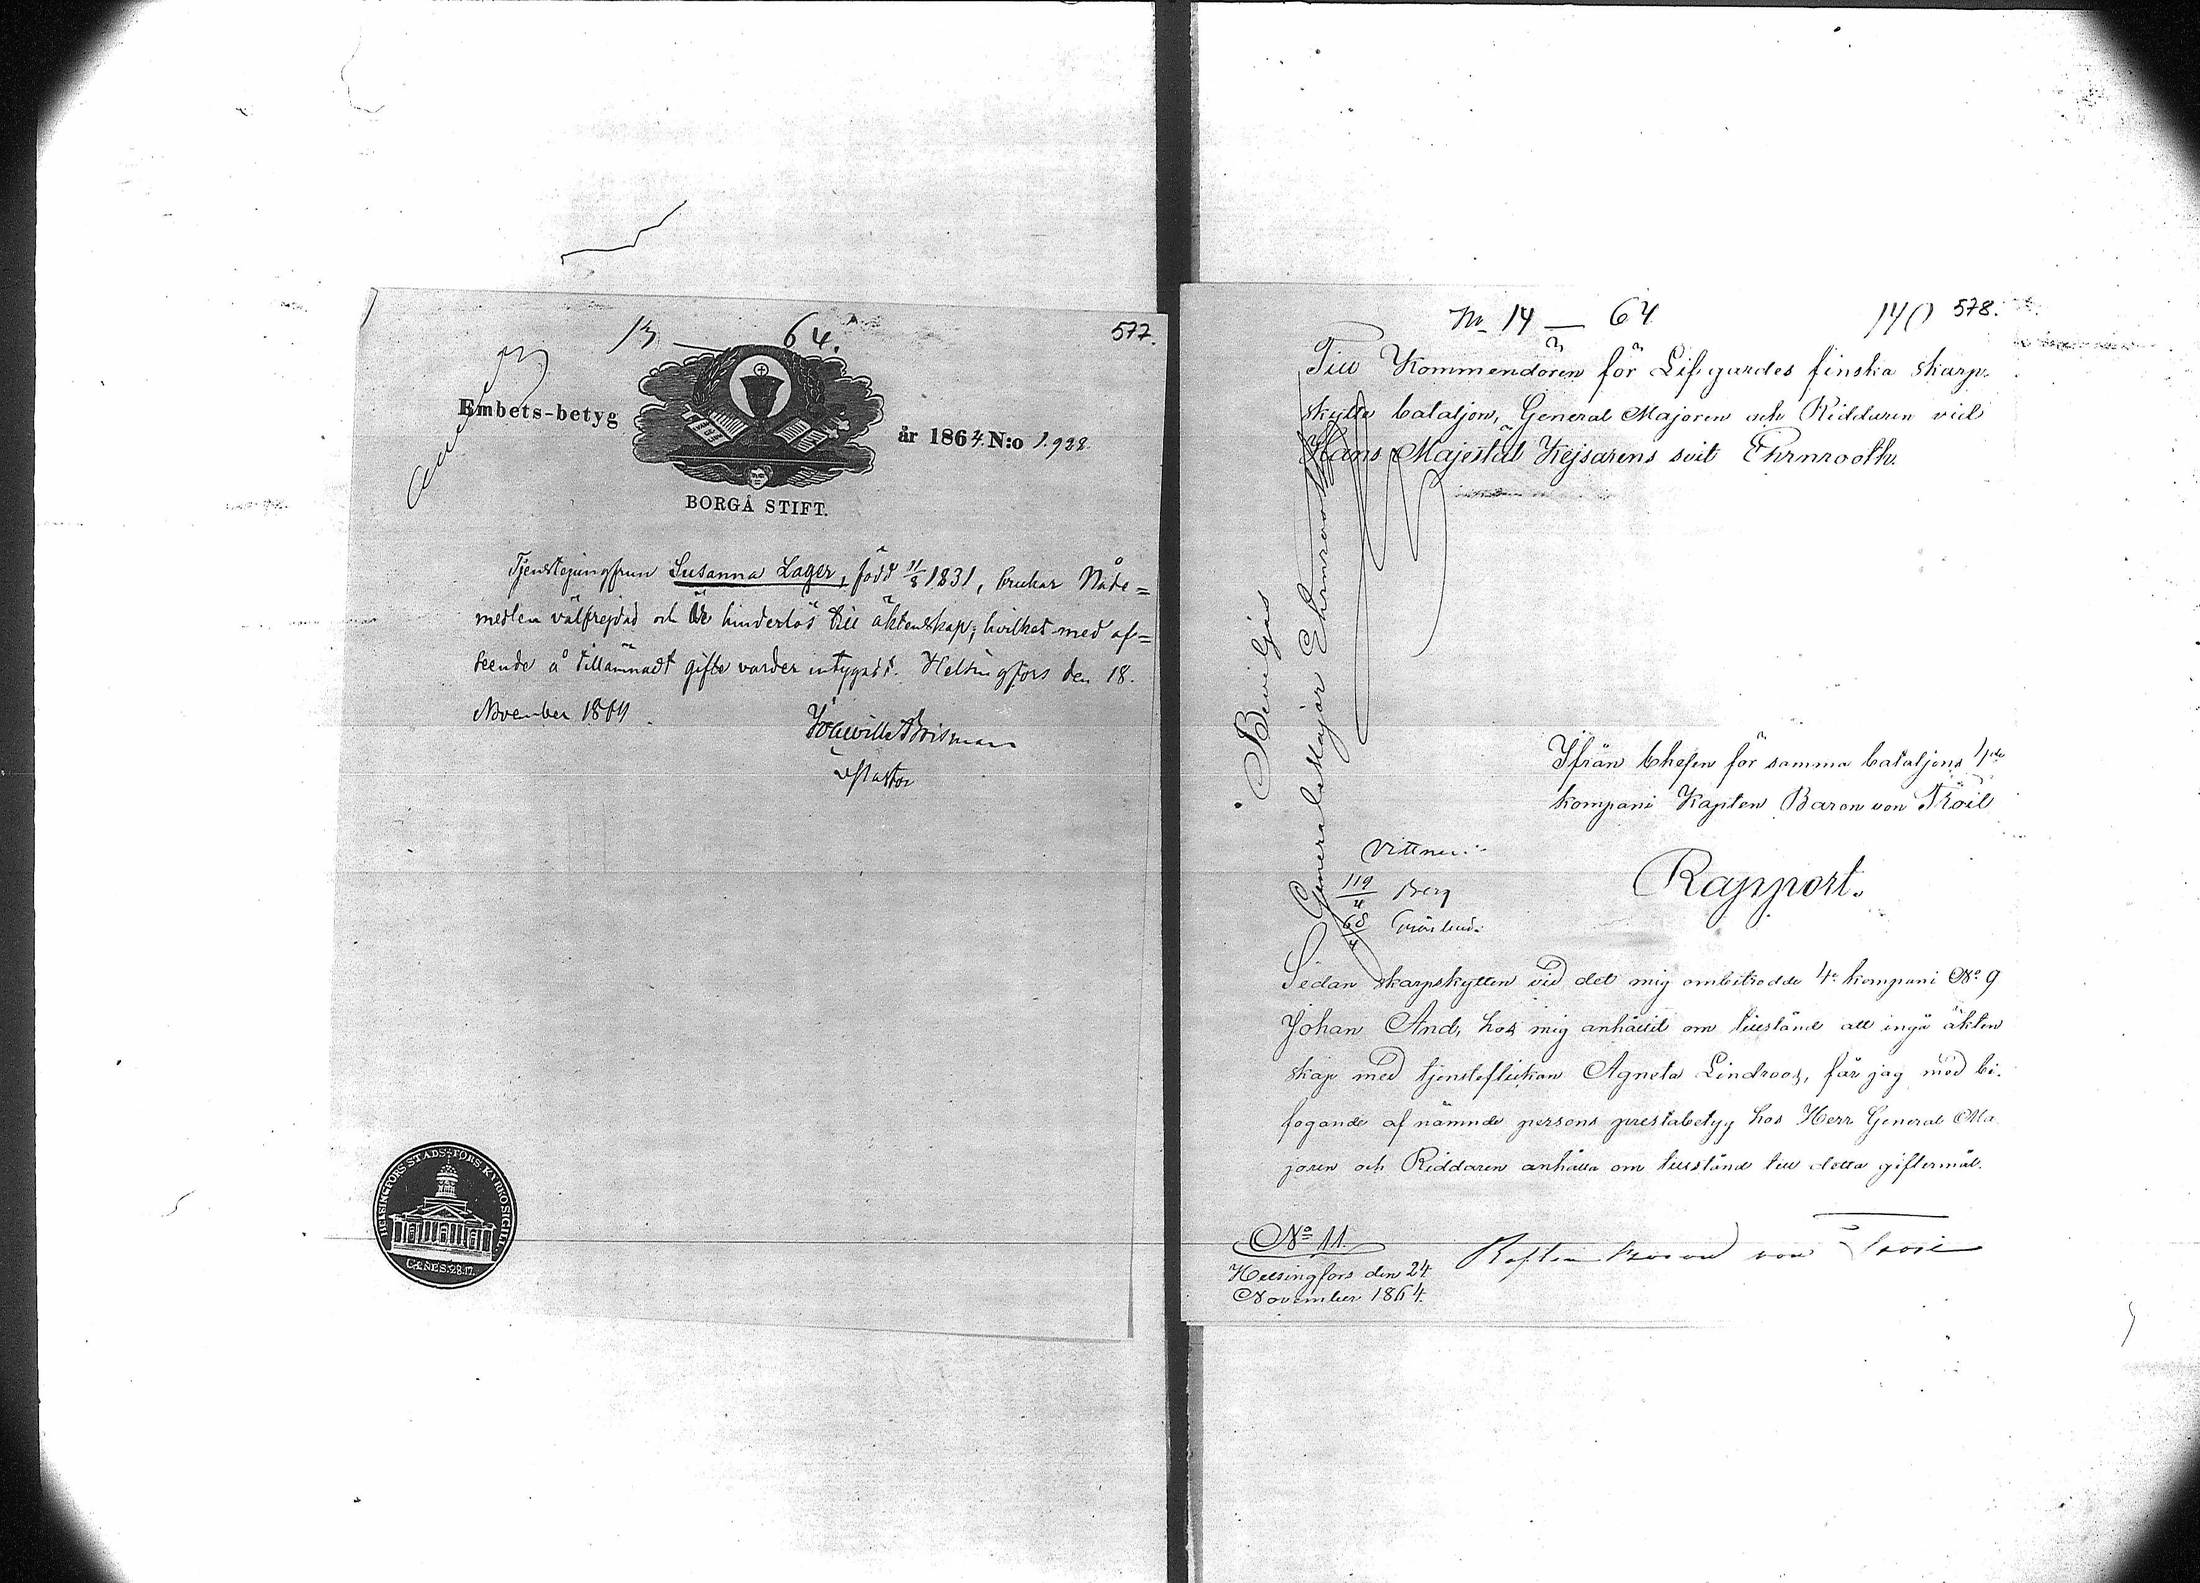 13 — 64.
577.
Embets-betyg
år 1864. N:o 1,928.
BORGÅ STIFT.
Tjenstejungfrun Susanna Lager, född 11/8 1831, brukar Nåde=
medlen välfrejdad och är hinderlös till äktenskap; hvilket med af=
seende å tillämnadt gifte varder intygadt. Helsingfors den 18.
November 1864.
Pastor
HELSINGFORS STADS-FÖRS. KYRKOSIGILL.
GENES. 28.17.
No 14 — 64
140 578.
Till Kommendören för Lifgardes finska skarp-
skytte bataljon, General Majoren och Riddaren vid
Hans Majestät Kejsarens svit Ehrnrooth.
Beviljas
General Major Ehrnrooth
Ifrån Chefen för samma bataljons 4de
kompani Kapten Baron von Troil
Vittnen:
119/4 Berg
68/4 Grönlund.
Rapport.
Sedan skarpskytten vid det mig ombetrodde 4e kompani No 9
Johan And, hos mig anhållit om tillstånd att ingå äkten
skap med tjensteflickan Agneta Lindroos, får jag med bi-
fogande af nämnde persons prestabetyg hos Herr General Ma
joren och Riddaren anhålla om tillstånd till detta giftermål.
No 11.
Helsingfors den 24
November 1864.
Kapten Baron von Troil